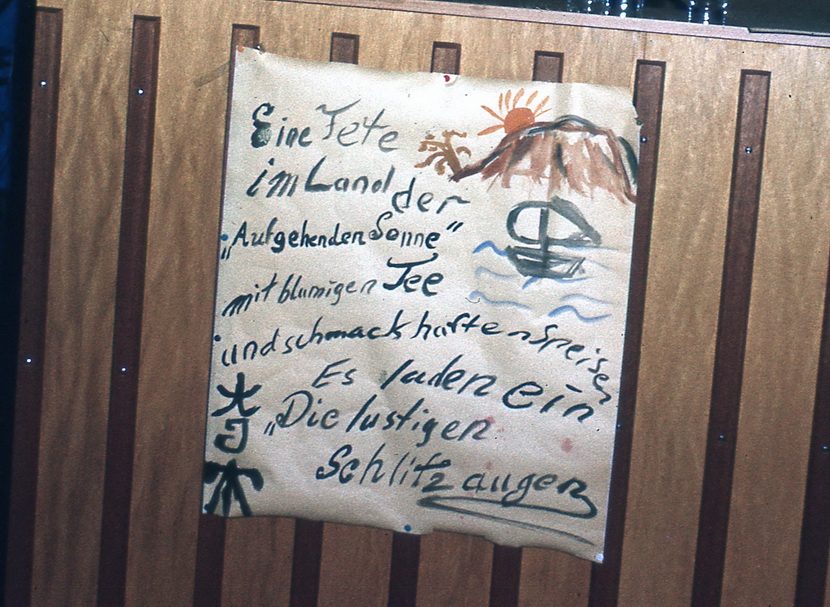 Eine Fete
im Land der
„Aufgehenden Sonne"
mit blumigen Tee
und schmackhaften Speisen
Es laden ein
„Die lustigen
Schlitzaugen